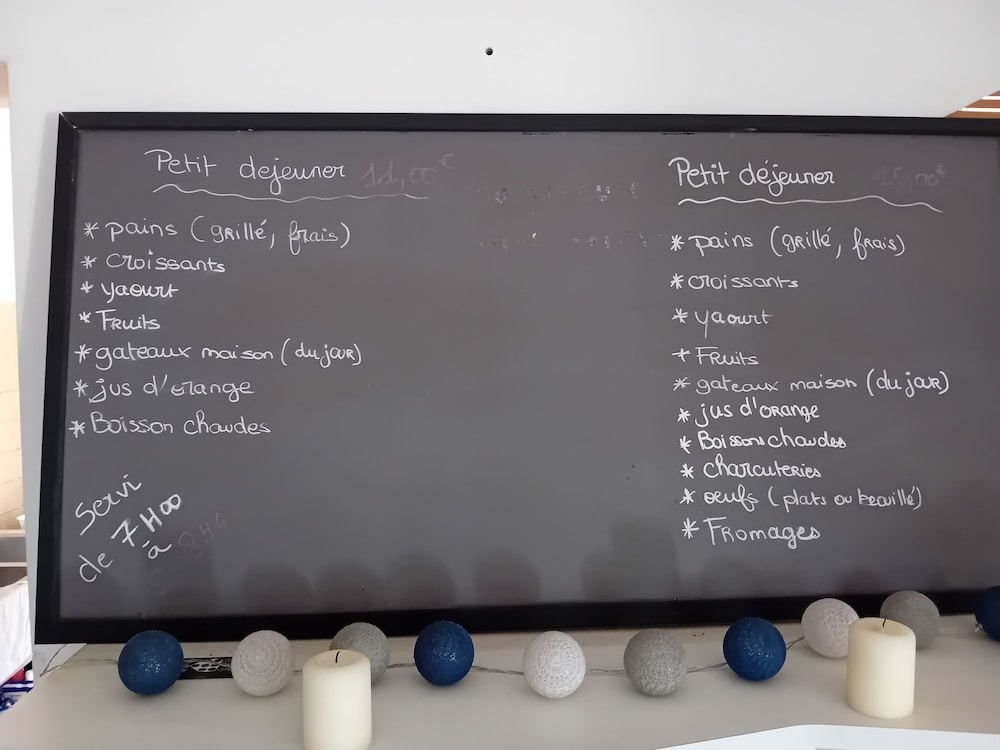 Petit dejeuner 11,00€
* pains (grillé, frais)
* croissants
* yaourt
* Fruits
* gateaux maison (du jour)
* jus d'orange
* Boisson chaudes
Servi
de 7H00
à
Petit déjeuner 15,00€
* pains (grillé, frais)
* croissants
* yaourt
* Fruits
* gateaux maison (du jour)
* jus d'orange
* Boissons chaudes
* charcuteries
* oeufs (plats ou brouillé)
* Fromages